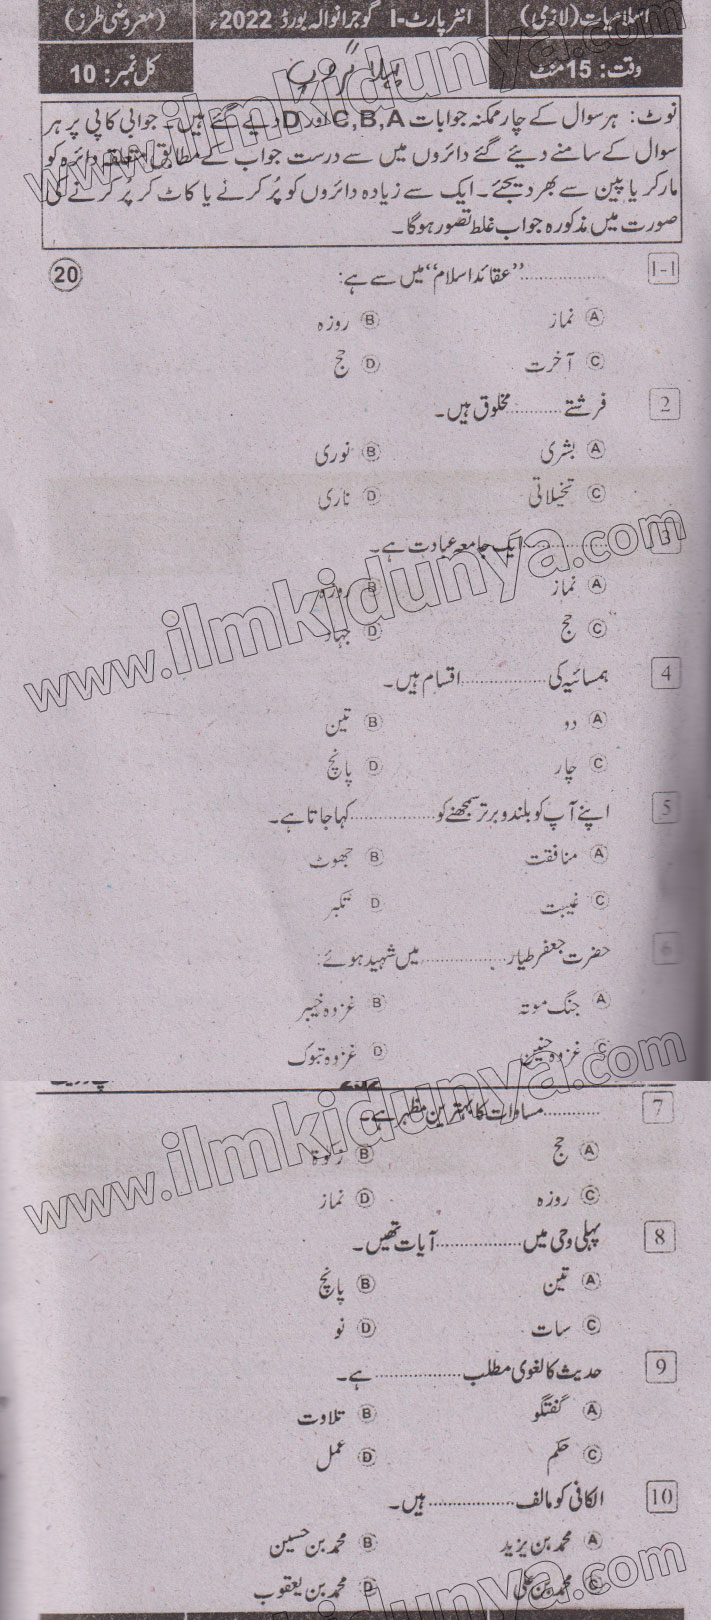 اسلامیات (لازمی) انٹرپارٹ-I گوجرانوالہ بورڈ 2022ء (معروضی طرز)
وقت: 15 منٹ پہلا گروپ کل نمبر: 10
نوٹ: ہر سوال کے چار ممکنہ جوابات C,B,A اور D دیے گئے ہیں۔ جوابی کاپی پر ہر
سوال کے سامنے دیئے گئے دائروں میں سے درست جواب کے مطابق متعلقہ دائرہ کو
مارکر یا پین سے بھر دیجئے۔ ایک سے زیادہ دائروں کو پُر کرنے یا کاٹ کر پُر کرنے کی
صورت میں مذکورہ جواب غلط تصور ہوگا۔
1-1 ................ ‘‘عقائد اسلام’’ میں سے ہے: 20
A نماز B روزہ
C آخرت D حج
2 فرشتے ........... مخلوق ہیں۔
A بشری B نوری
C تخیلاتی D ناری
3 ................ ایک جامعہ عبادت ہے۔
A نماز B روزہ
C حج D جہاد
4 ہمسائیہ کی ................ اقسام ہیں۔
A دو B تین
C چار D پانچ
5 اپنے آپ کو بلند و برتر سمجھنے کو ................ کہا جاتا ہے۔
A منافقت B جھوٹ
C غیبت D تکبر
6 حضرت جعفر طیار ................ میں شہید ہوئے:
A جنگ موتہ B غزوہ خیبر
C غزوہ حنین D غزوہ تبوک
7 ........... مساوات کا بہترین مظہر ہے۔
A حج B زکوٰۃ
C روزہ D نماز
8 پہلی وحی میں ................ آیات تھیں۔
A تین B پانچ
C سات D نو
9 حدیث کا لغوی مطلب ................ ہے۔
A گفتگو B تلاوت
C حکم D عمل
10 الکافی کو مالف ................ ہیں۔
A محمد بن یزید B محمد بن حسین
C محمد بن علی D محمد بن یعقوب
www.ilmkidunya.com
www.ilmkidunya.com
www.ilmkidunya.com
www.ilmkidunya.com